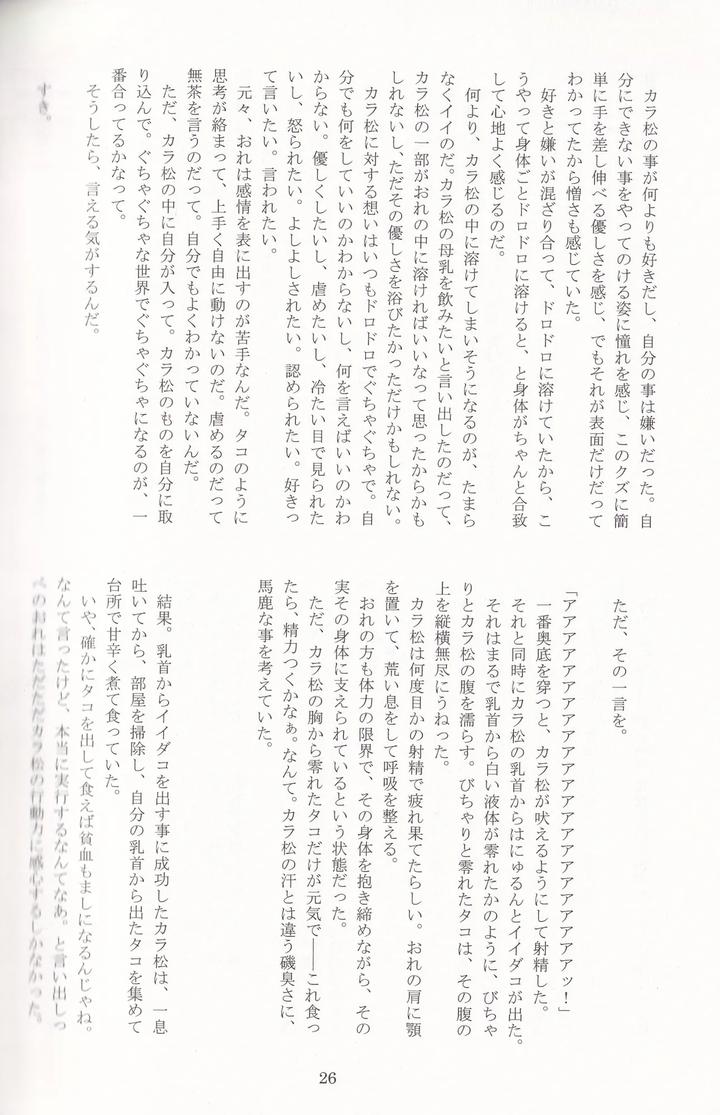 カラ松の事が何よりも好きだし、自分の事は嫌いだった。自
分にできない事をやってのける姿に憧れを感じ、このクズに簡
単に手を差し伸べる優しさを感じ、でもそれが表面だけだって
わかってたから憎さも感じていた。
好きと嫌いが混ざり合って、ドロドロに溶けていたから、こ
うやって身体ごとドロドロに溶けると、と身体がちゃんと合致
して心地よく感じるのだ。
何より、カラ松の中に溶けてしまいそうになるのが、たまら
なくイイのだ。カラ松の母乳を飲みたいと言い出したのだって、
カラ松の一部がおれの中に溶ければいいなって思ったからかも
しれないし、ただその優しさを浴びたかっただけかもしれない。
カラ松に対する想いはいつもドロドロでぐちゃぐちゃで。自
分でも何をしていいのかわからないし、何を言えばいいのかわ
からない。優しくしたいし、虐めたいし、冷たい目で見られた
いし、怒られたい。よしよしされたい。認められたい。好きっ
て言いたい。言われたい。
元々、おれは感情を表に出すのが苦手なんだ。タコのように
思考が絡まって、上手く自由に動けないのだ。虐めるのだって
無茶を言うのだって。自分でもよくわかっていないんだ。
ただ、カラ松の中に自分が入って。カラ松のものを自分に取
り込んで。ぐちゃぐちゃな世界でぐちゃぐちゃになるのが、一
番合ってるかなって。
そうしたら、言える気がするんだ。
すき。
ただ、その一言を。
「アアアアアアアアアアアアアアアアアアアアアアアッ！」
一番奥底を穿つと、カラ松が吠えるようにして射精した。
それと同時にカラ松の乳首からはにゅるんとイイダコが出た。
それはまるで乳首から白い液体が零れたかのように、びちゃ
りとカラ松の腹を濡らす。びちゃりと零れたタコは、その腹の
上を縦横無尽にうねった。
カラ松は何度目かの射精で疲れ果てたらしい。おれの肩に顎
を置いて、荒い息をして呼吸を整える。
おれの方も体力の限界で、その身体を抱き締めながら、その
実その身体に支えられているという状態だった。
ただ、カラ松の胸から零れたタコだけが元気で――これ食っ
たら、精力つくかなぁ。なんて。カラ松の汗とは違う磯臭さに、
馬鹿な事を考えていた。
結果。乳首からイイダコを出す事に成功したカラ松は、一息
吐いてから、部屋を掃除し、自分の乳首から出たタコを集めて
台所で甘辛く煮て食っていた。
いや、確かにタコを出して食えば貧血もましになるんじゃね。
なんて言ったけど、本当に実行するなんてなあ。と言い出しっ
ぺのおれはただただカラ松の行動力に感心するしかなかった。
26